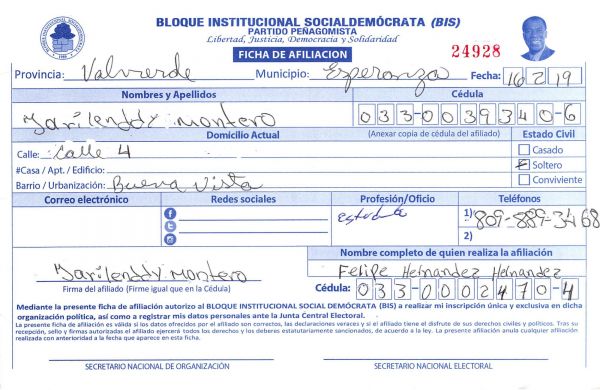 BLOQUE INSTITUCIONAL SOCIALDEMÓCRATA (BIS)
PARTIDO PEÑAGOMISTA
Libertad, Justicia, Democracia y Solidaridad
FICHA DE AFILIACION
24928
Provincia: Valverde Municipio: Esperanza Fecha: 16/2/19
Nombres y Apellidos Cédula
Jarilenddy montero 033-0039340-6
Domicilio Actual (Anexar copia de cédula del afiliado) Estado Civil
Calle: Calle 4 Casado
#Casa / Apt. / Edificio: Soltero
Barrio / Urbanización: Buena Vista Conviviente
Correo electrónico Redes sociales Profesión/Oficio Teléfonos
1) 809-889-3468
2)
Nombre completo de quien realiza la afiliación
Jarilenddy montero Felipe Hernandez Hernandez
Firma del afiliado (Firme igual que en la Cédula) Cédula: 033-0002470-4
Mediante la presente ficha de afiliación autorizo al BLOQUE INSTITUCIONAL SOCIAL DEMÓCRATA (BIS) a realizar mi inscripción única y exclusiva en dicha
organización política, así como a registrar mis datos personales ante la Junta Central Electoral.
La presente ficha de afiliación es válida si los datos ofrecidos por el afiliado son correctos, las declaraciones veraces y si el afiliado tiene el disfrute de sus derechos civiles y políticos. Tras su
recepción, sello y firmas autorizadas el afiliado ejercerá todos los derechos y los deberes estatutariamente sancionados, de acuerdo a la ley. La presente afiliación anula cualquier afiliación
realizada con anterioridad a la fecha que aparece en esta ficha.
SECRETARIO NACIONAL DE ORGANIZACIÓN SECRETARIO NACIONAL ELECTORAL